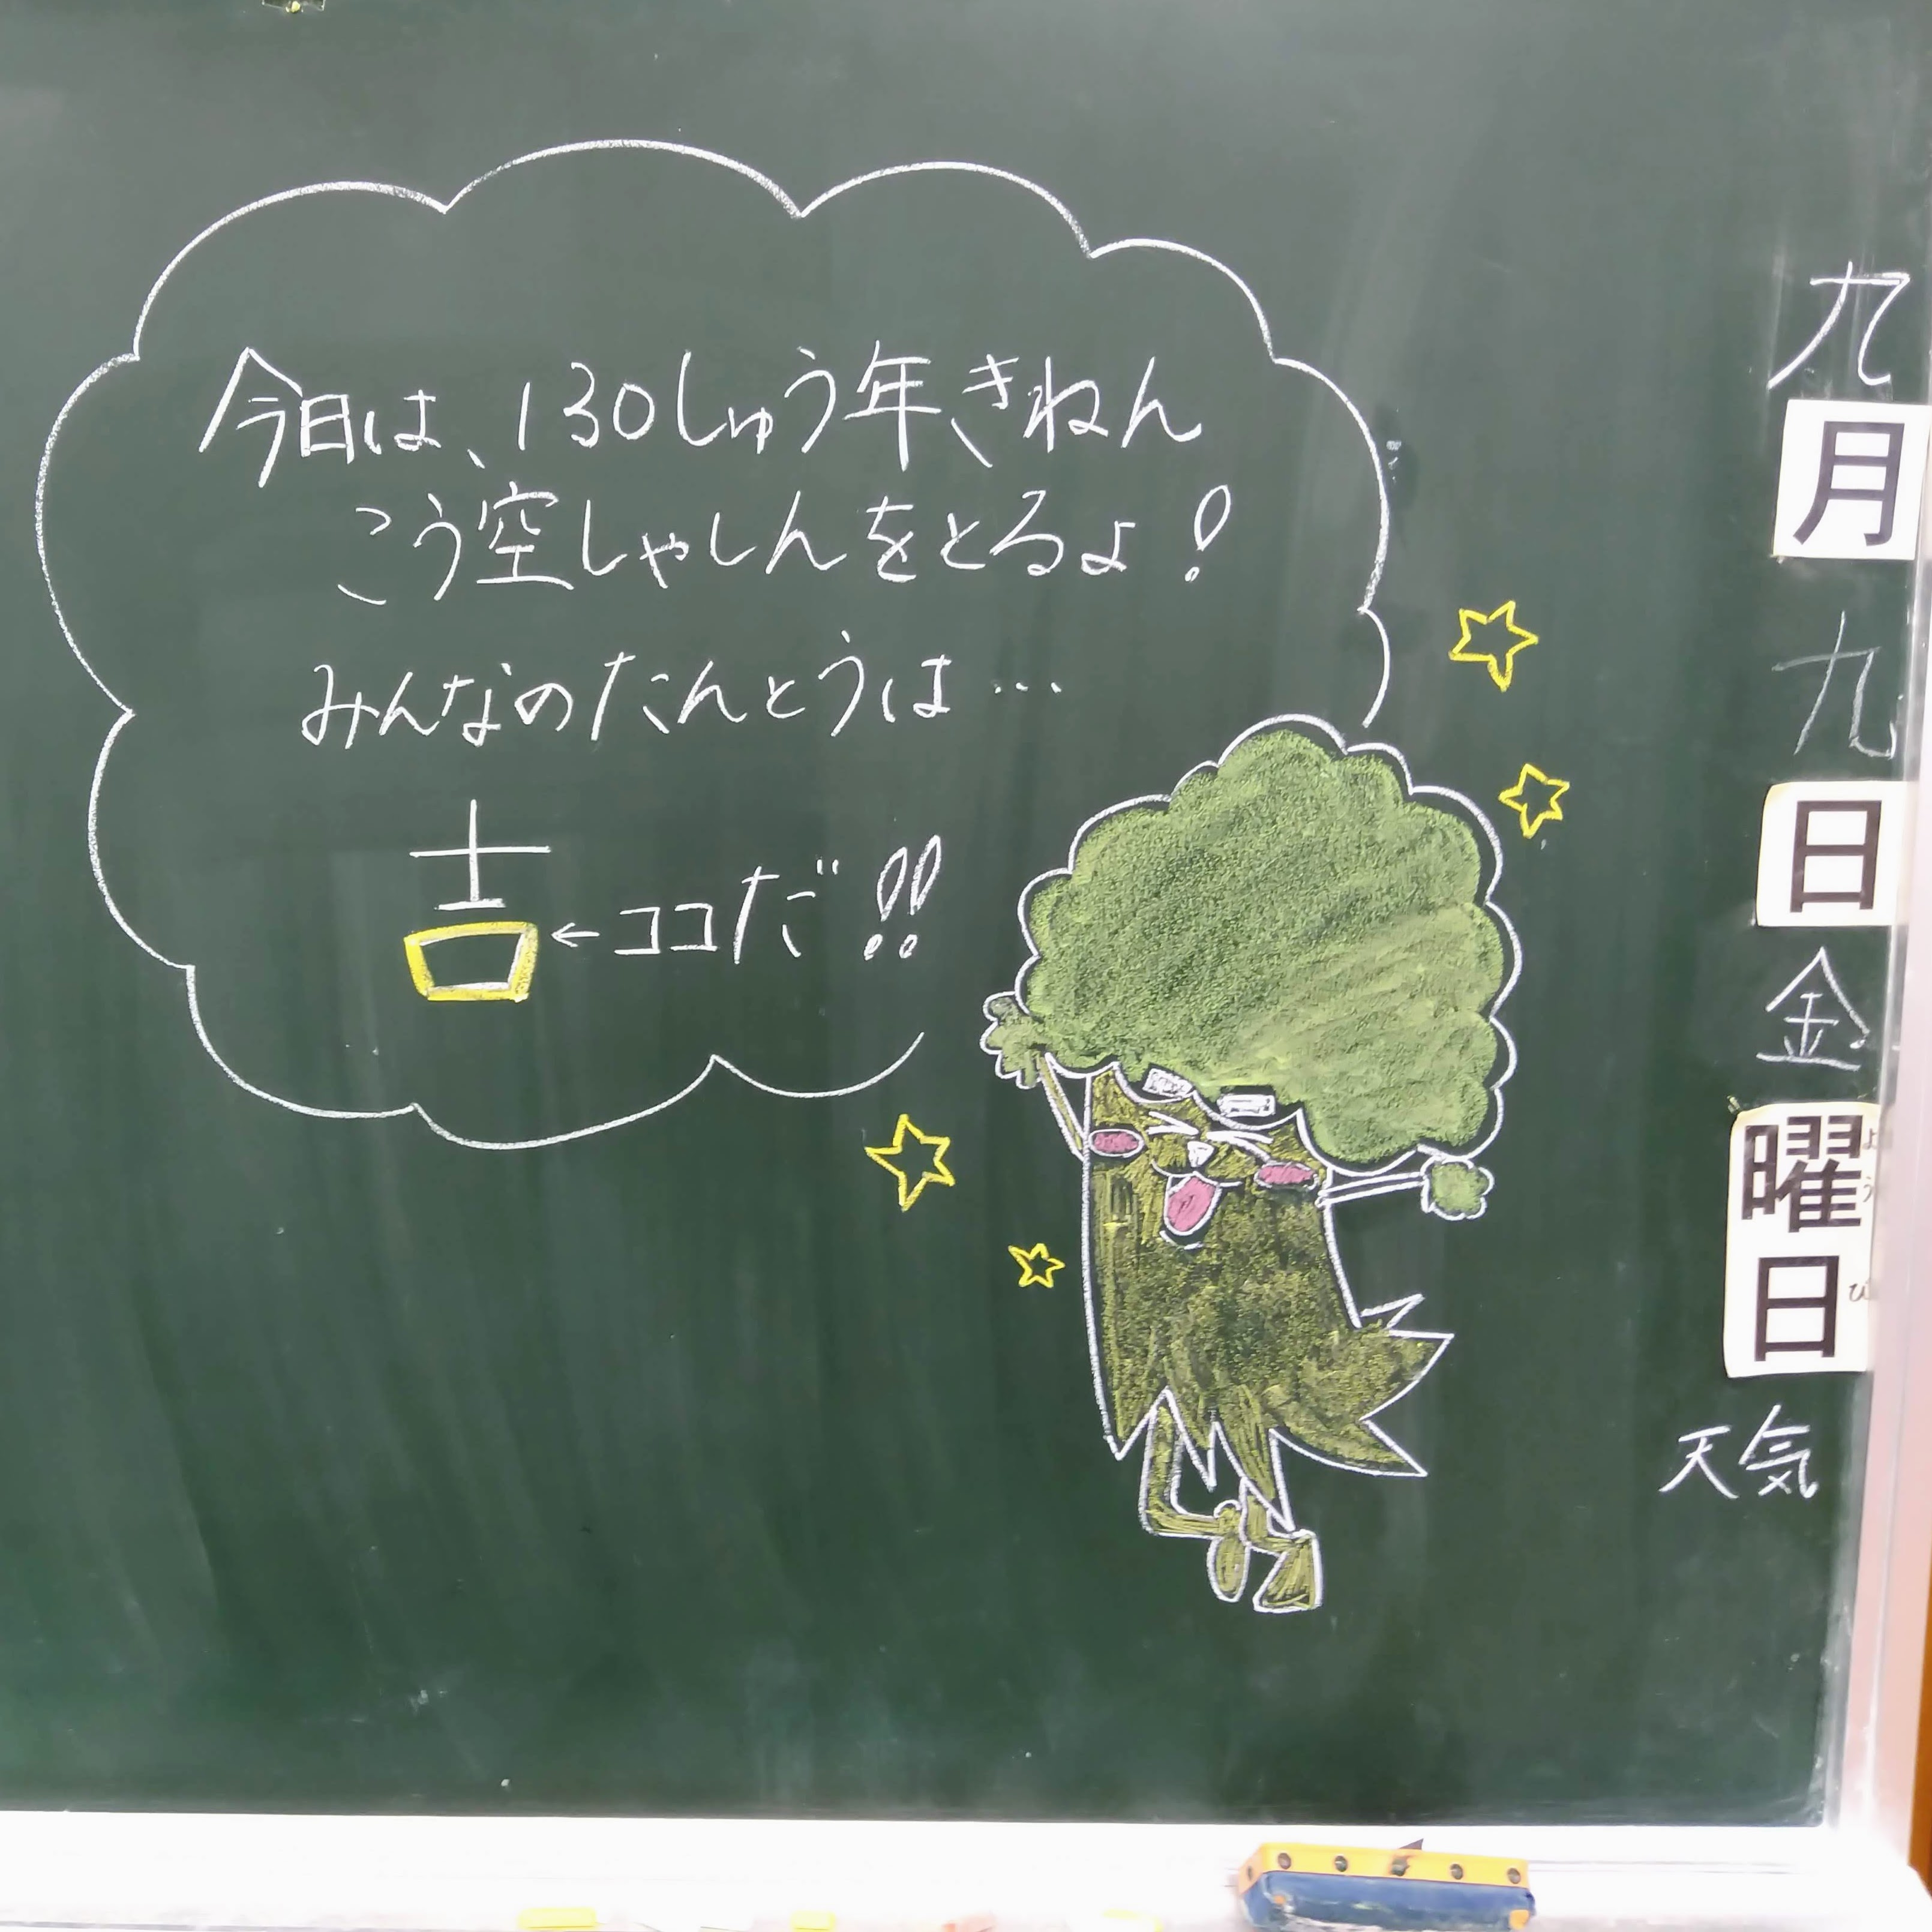 今日は、130しゅう年きねん
こう空しゃしんをとるよ!
みんなのたんとうは…
吉←ココだ!!
九月九日金曜日
よう
び
天気